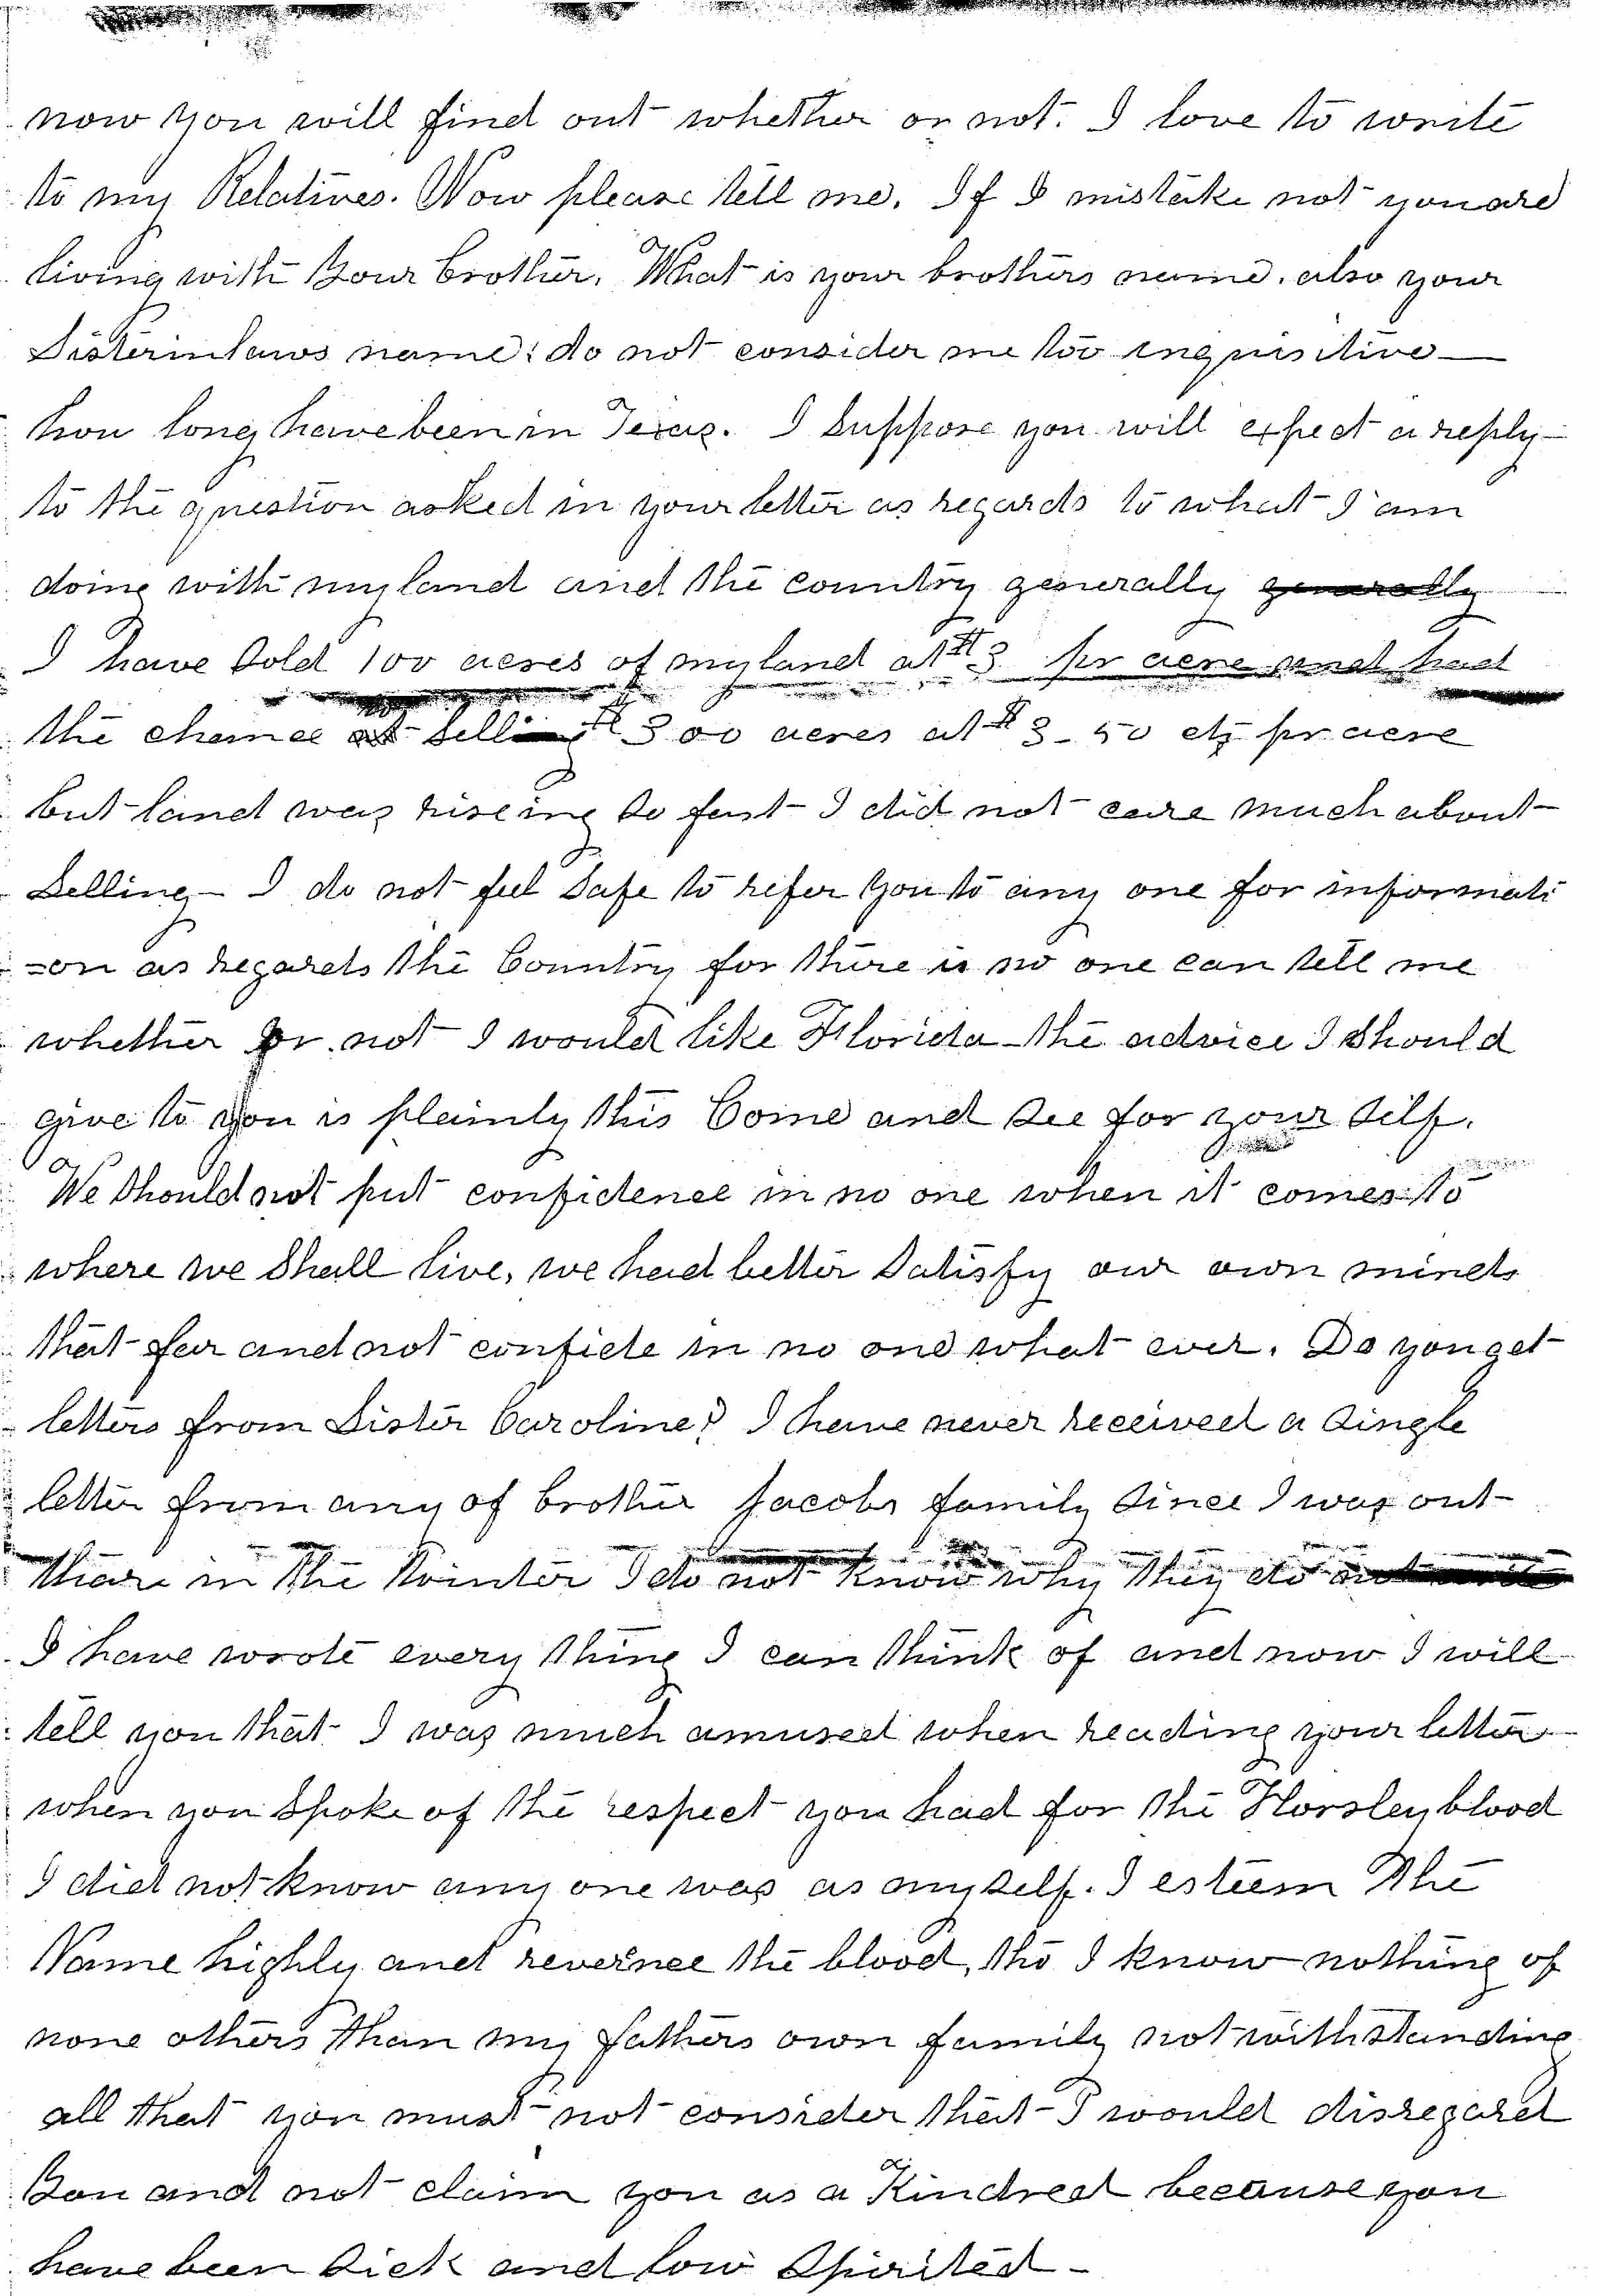 now you will find out whether or not. I love to write
to my Relatives. Now please tell me. If I mistake not you are
living with Your brother. What is your brothers name. also your
Sisterinlaws name: do not consider me too inquisitive —
how long have been in Texas. I Suppose you will expect a reply —
to the question asked in your letter as regards to what I am
doing with my land and the country generally generally
I have Sold 100 acres of my land at $3 pr acre and had
the chance at Selling 300 acres at $3-50 cts pr acre
but land was riseing So fast I did not care much about
Selling — I do not feel Safe to refer You to any one for informati
=on as regards the Country for there is no one can tell me
whether or not I would like Florida — the advice I Should
give to you is plainly this Come and See for your Self.
We Should not put confidence in no one when it comes to
where we Shall live, we had better Satisfy our own minds
that far and not confide in no one what ever. Do you get
letters from Sister Caroline? I have never received a Single
letter from any of brother Jacobs family Since I was out
thare in the Winter I do not know why they do not write
I have wrote every thing I can think of and now I will
tell you that I was much amused when reading your letter
when you Spoke of the respect you had for the Horsley blood
I did not know any one was as my Self. I esteem the
Name highly and revernce the blood, tho I know nothing of
none others than my fathers own family not withstanding
all that you must not consider that I would disregard
You and not claim you as a Kindred because you
have been Sick and low Spirited —